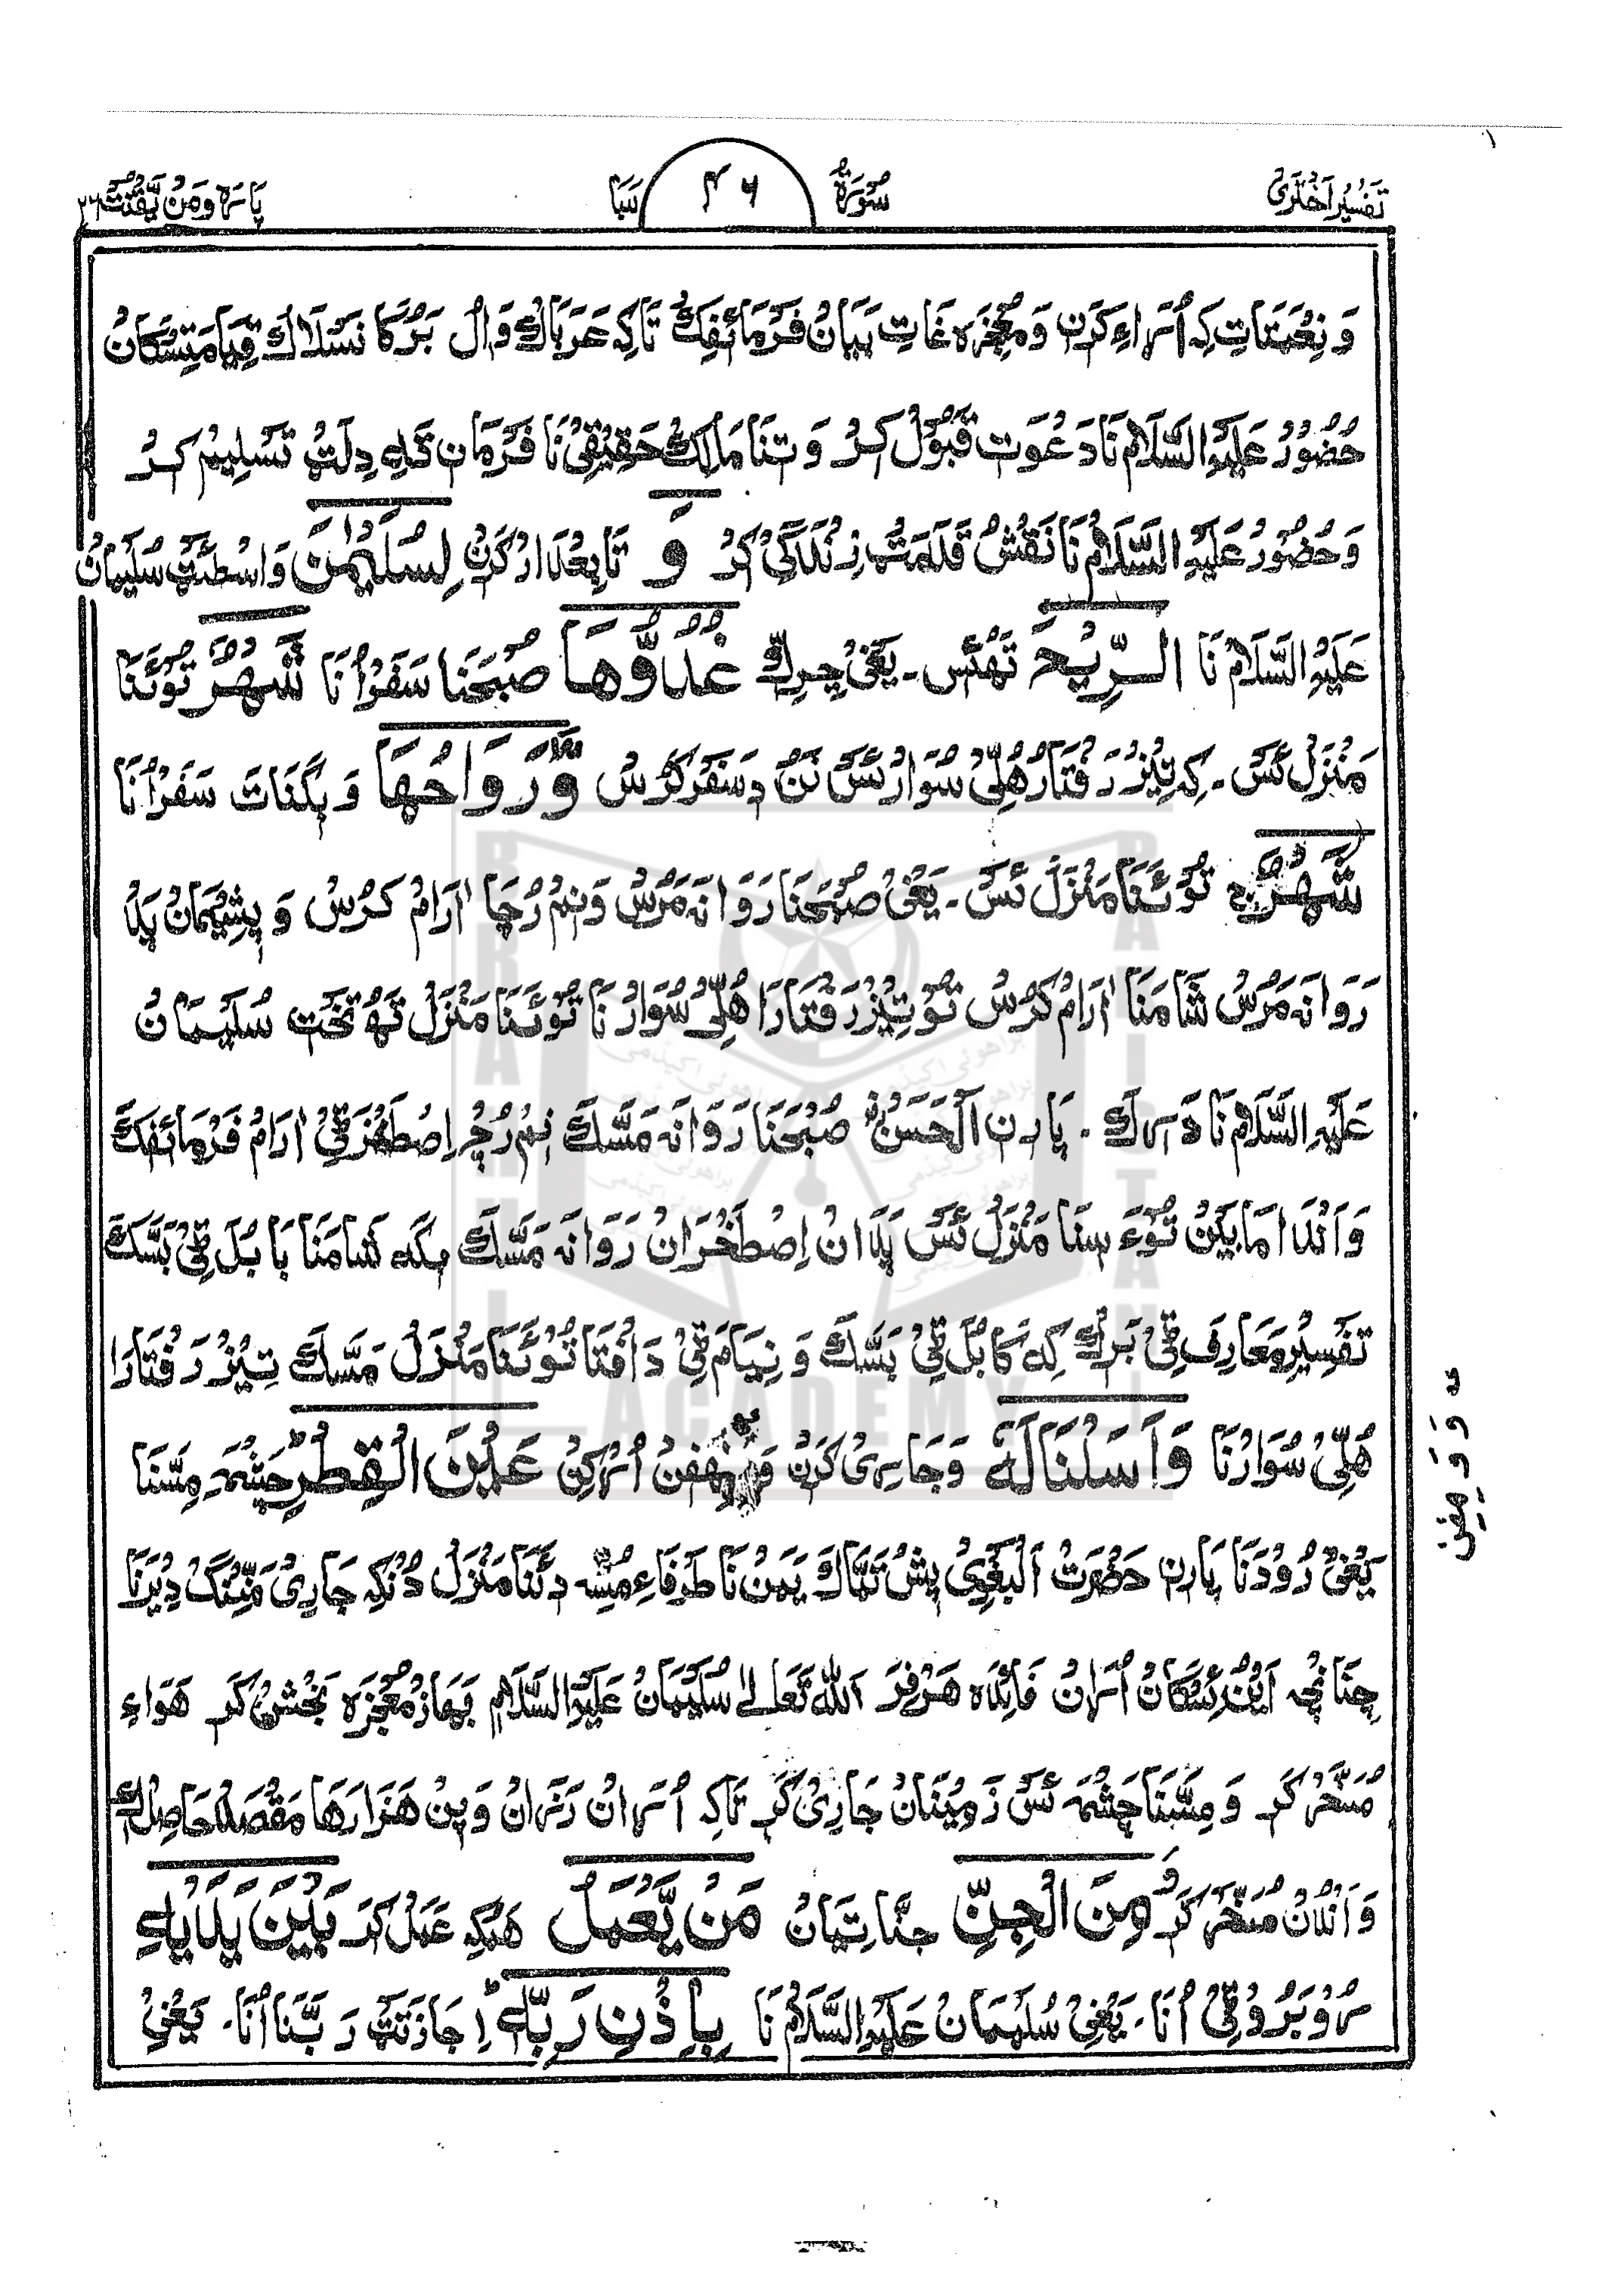 تَفسِیُر اَخْتَرِی سُوْرَۃُ ۴۶ سَبَا پَارَہ وَمَنْ یَّقْنُتْ ۲۲
وَ نِعْمَتَاتِ کِہ اُسْرَاءِ کَرِن وَ مُعْجِزَہ غَاتِ بَیَانْ فَرْمَائِفِکْ تَاکِہ عَرَبَاکْ وَالْ بَرْکَا نَسْلَاکْ قِیَامَتِسْکَانْ
حُضُوْرْ عَلَیْہِ السَّلَامْ نَا دَعْوَتِ قَبُوْل کِرْ وَ تِنَا مَالِکْ حَقِیْقِیْ نَا فَرْمَانِ تَہِ دِلَتْ تَسْلِیْم کِرْ
وَ حُضُوْرْ عَلَیْہِ السَّلَامْ نَا نَقْشِ قَدَمَتْ زِنْدَگِیْ کِرْ وَ تَابِعْدَارْ کَرِنْ لِسُلَیْمٰنَ وَاسْطَئَتْ سُلَیْمَانْ
عَلَیْہِ السَّلَامْ نَا الرِّیْحَ تَھْئَس۔ یَعْنِیْ چِرِکْ غُدُوُّھَا صُبْحَنَا سَفَرْاُنَا شَھْرٌ تُوْئَنَا
مَنْزِلْ ئَسْ۔ کِہ تِیْز رَفْتَارْ ھُلِّیْ سُوَارْئَسْ تَنْ دِ سَفَرْ کَرْسْ وَّرَوَاحُھَا وَ بِگَنَاتَ سَفَرْاُنَا
شَھْرٌ ج تُوْئَنَا مَنْزِلْ ئَسْ۔ یَعْنِیْ صُبْحَنَا رَوَانَہ مَرْسْ وَ نِیْم رُچَا اٰرَامْ کَرْسْ وَ پِشِیْمَانْ پَدْ
رَوَانَہ مَرْسْ شَامَنَا اٰرَامْ کَرْسْ تُوْ تِیْزْ رَفْتَارَا ھُلِّیْ سُوَارْ نَا تُوْئَنَا مَنْزِلْ تَھْ تَخْت سُلَیْمَانْ
عَلَیْہِ السَّلَامْ نَا دَسْرَکْ۔ پَارِن اَلْحَسَنْ صُبْحَنَا رَوَانَہ مَسَّکْ نِیْم رُچْ اِصْطَخْرَٹِیْ اٰرَامْ فَرْمَائِفَکْ
وَ اَنْدَا مَابَیْنْ تُوْءَ سِنَا مَنْزِلْ ئَسْ پَدَانْ اِصْطَخْرَانْ رَوَانَہ مَسَّکْ بِگَہ شَامَنَا بَابُلْ ٹِیْ بَسَّکَ
تَفْسِیْرِ مَعَارِفْ ٹِیْ بَرَکْ کِہ کَابُلْ ٹِیْ بَسَّکَ وَ نِیَامْ ٹِیْ دَافْتَا تُوْئَنَا مَنْزِلْ مَسَّکَ تِیْزْ رَفْتَارَا
ھُلِّیْ سُوَارْنَا وَاَسَلْنَا لَہٗ وَجَارِیْ کَرِنْ اُسْرَکِنْ عَیْنَ الْقِطْرِ چَشْمَہ مِسَّنَا
یَعْنِیْ رُوْدَنَا پَارِن حَضْرَتْ اَلْبَغْوِیْ یَمَنْ نَا طَرْفَاءِ مُسِّہ دِئَنَا مَنْزِلْ دُنْکِہ جَارِیْ مَنِّنْگْ دِیْرَنَا
چَنَانْچِہ اَیْنْ اِسْکَانْ اُسْرَانْ فَائِدَہ ھَرْفِرَ اَللہ تَعَالیٰ سُلَیْمَانْ عَلَیْہِ السَّلَام بَھَازْ مُعْجِزَہ بَخْشْ کَرِ ھَوَاءِ
مُسَخَّرْ کَرِ وَ مِسَّنَا چَشْمَہ ئَسْ زَمِیْنَانْ جَارِیْ کَرِ تَاکِہ اُسْرَانْ وَ پِنْ ھَزَارَھَا مَقْصَدْ حَاصِلْ
وَ اَنْدُنْ مُسَخَّرْ کَرِ وَمِنَ الْجِنِّ جِنَّاتِیَانْ مَنْ یَّعْمَلُ ھَنْکِہ عَمَلْ کَرِ بَیْنَ یَدَیْہِ
رُوْبَرُوْٹِیْ اُنَا۔ یَعْنِیْ سُلَیْمَانْ عَلَیْہِ السَّلَامْ نَا بِاِذْنِ رَبِّہٖ ط اِجَازَتَتْ رَبَّنَا اُنَا۔ یَعْنِیْ
BRAHUI ACADEMY PAKISTAN
براھوئی اکیڈمی